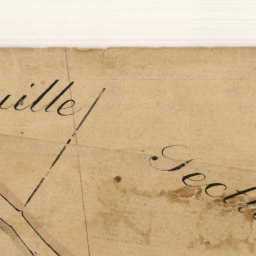 uille
Secti